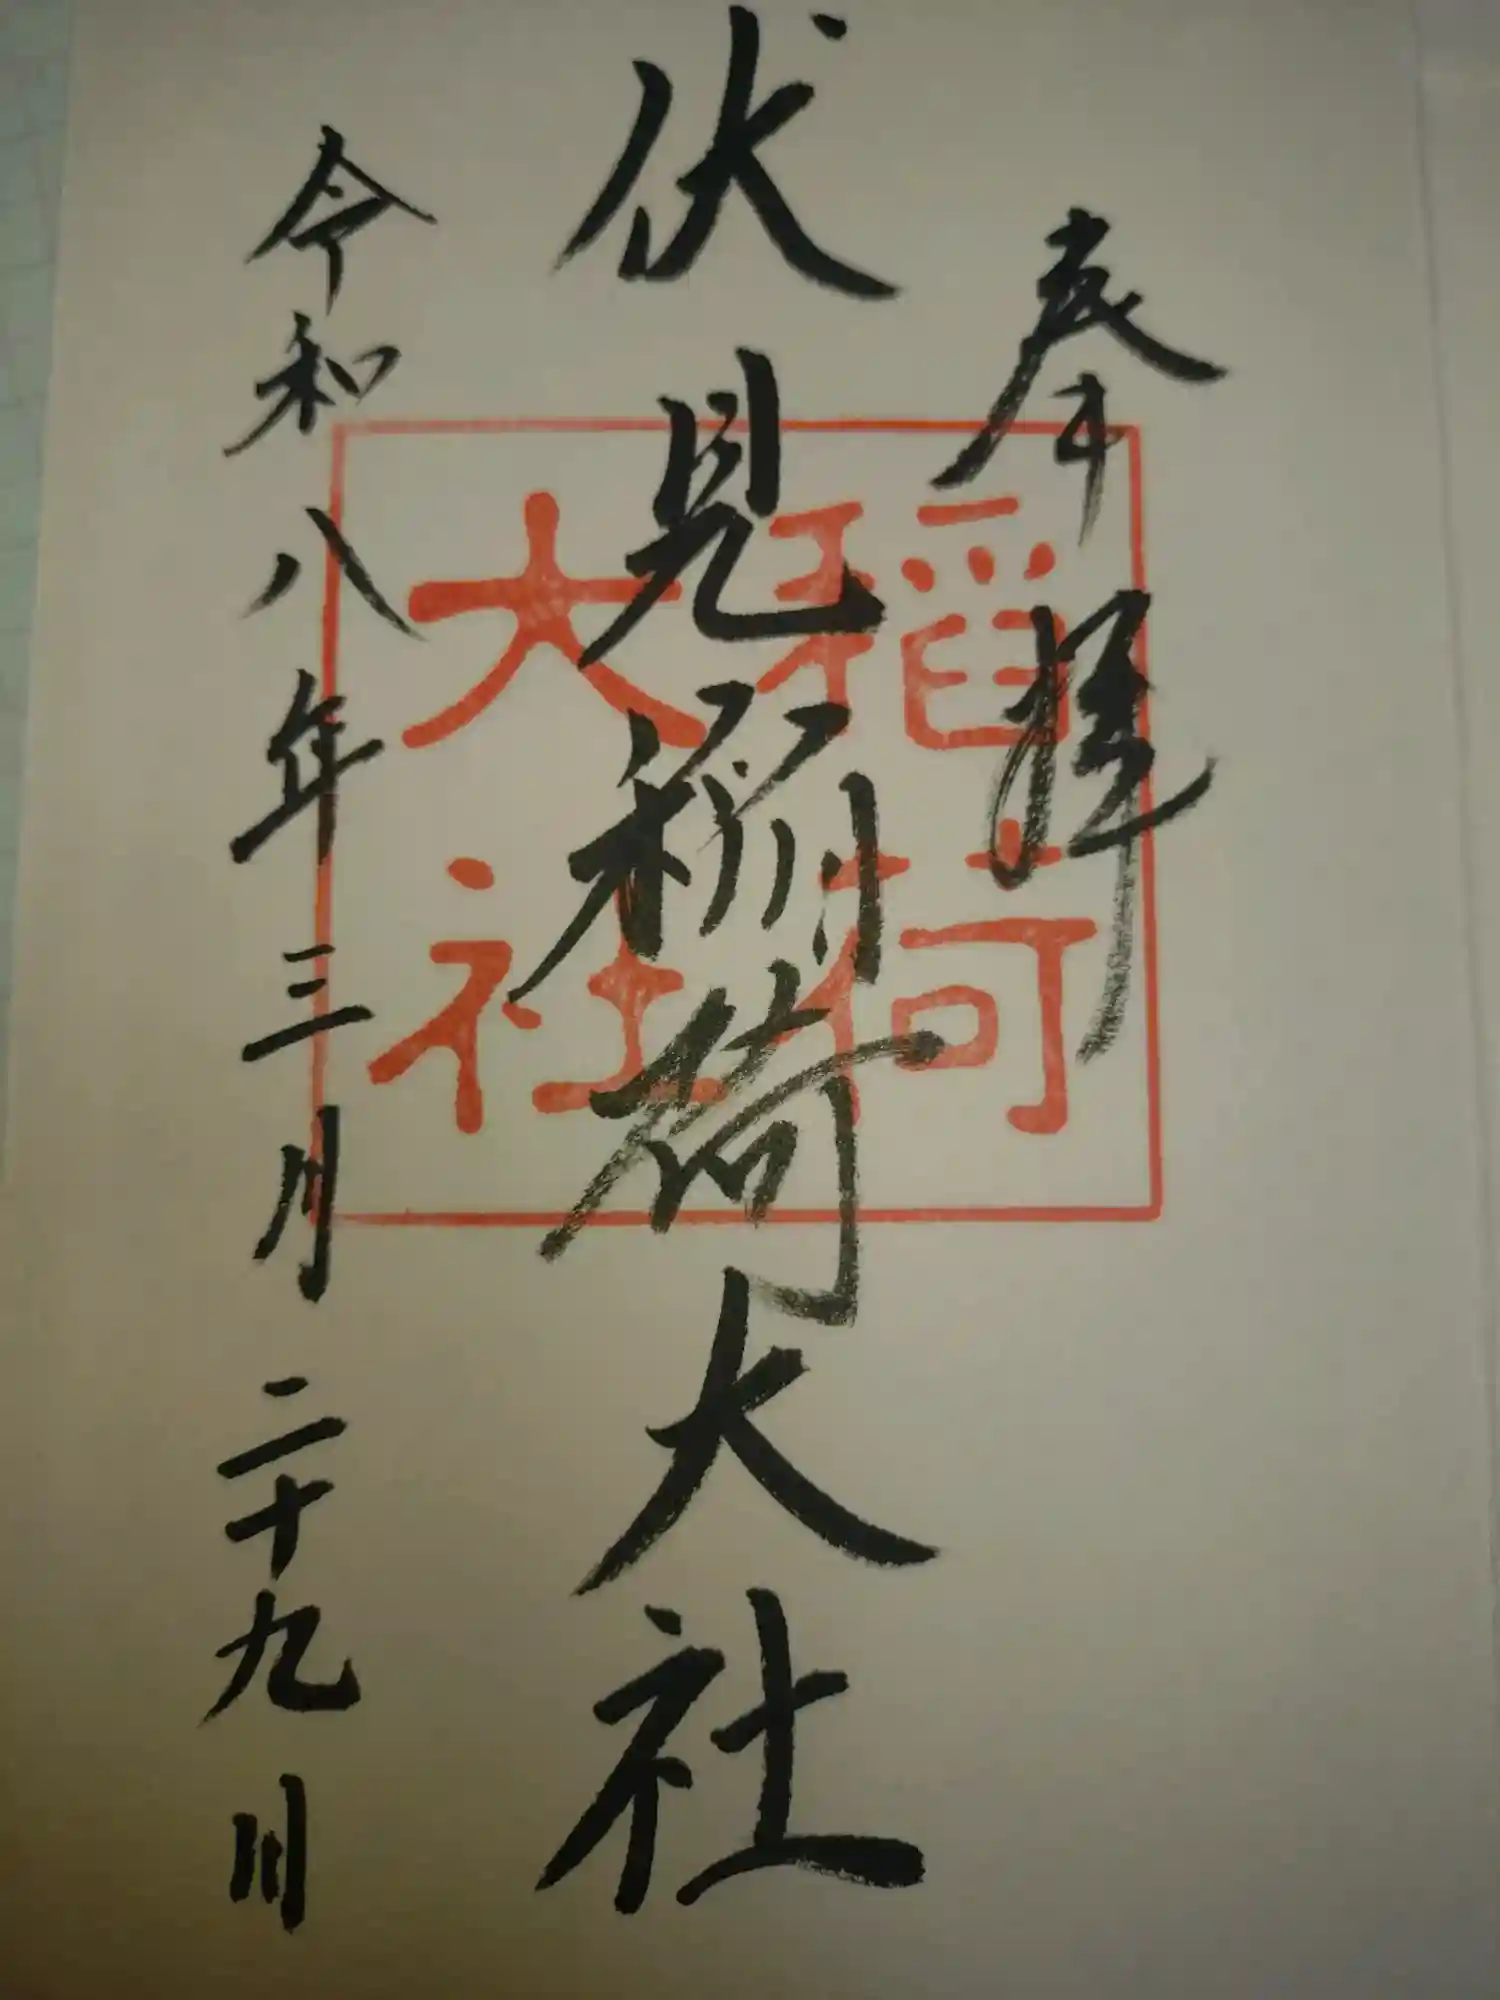 奉拝
伏見稲荷大社
稲荷
大社
令和八年三月二十九日